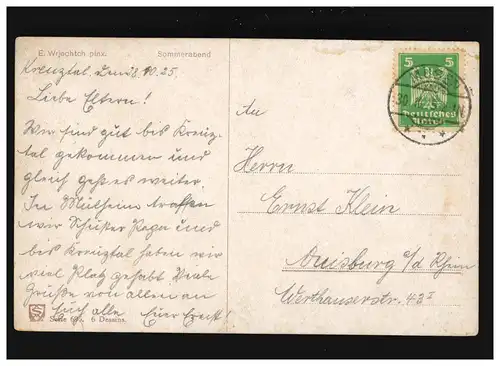 E. Wrjschtch pinx. Sommerabend
Kreuztal, den 28.10.25.
Liebe Eltern!
Wir sind gut bis Kreuz-
tal gekommen und
gleich geht es weiter.
In Mülheim trafen
wir Schüker Papa und
bis Kreuztal haben wir
viel Platz gehabt. Viele
Grüße von allen an
Euch alle Euer Ernst!
Serie 6 Dessins.
5 5
Deutsches
Reich
30
An
Herrn
Ernst Klein
Duisburg a/d Rhein
Werthauserstr. 48 I